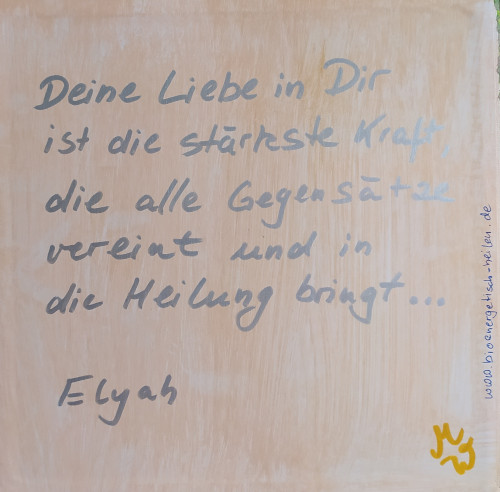 Deine Liebe in Dir
ist die stärkste Kraft,
die alle Gegensätze
vereint und in
die Heilung bringt...
Elyah
www.bioenergetisch-heilen.de